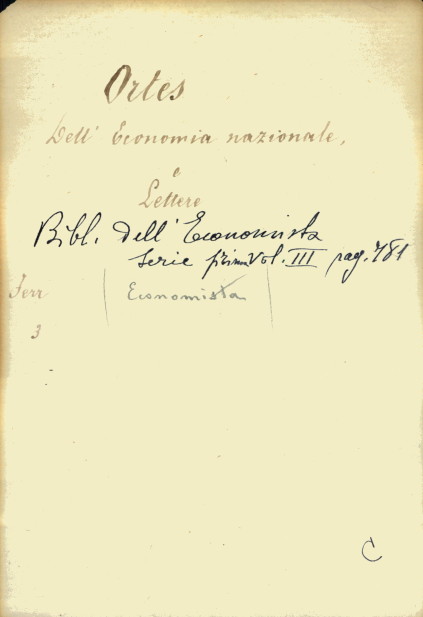 Ortes
Dell' Economia nazionale,
e
Lettere
Bibl. dell'Economista
Serie prima Vol. III pag. 781
Ferr
Economista
3
C